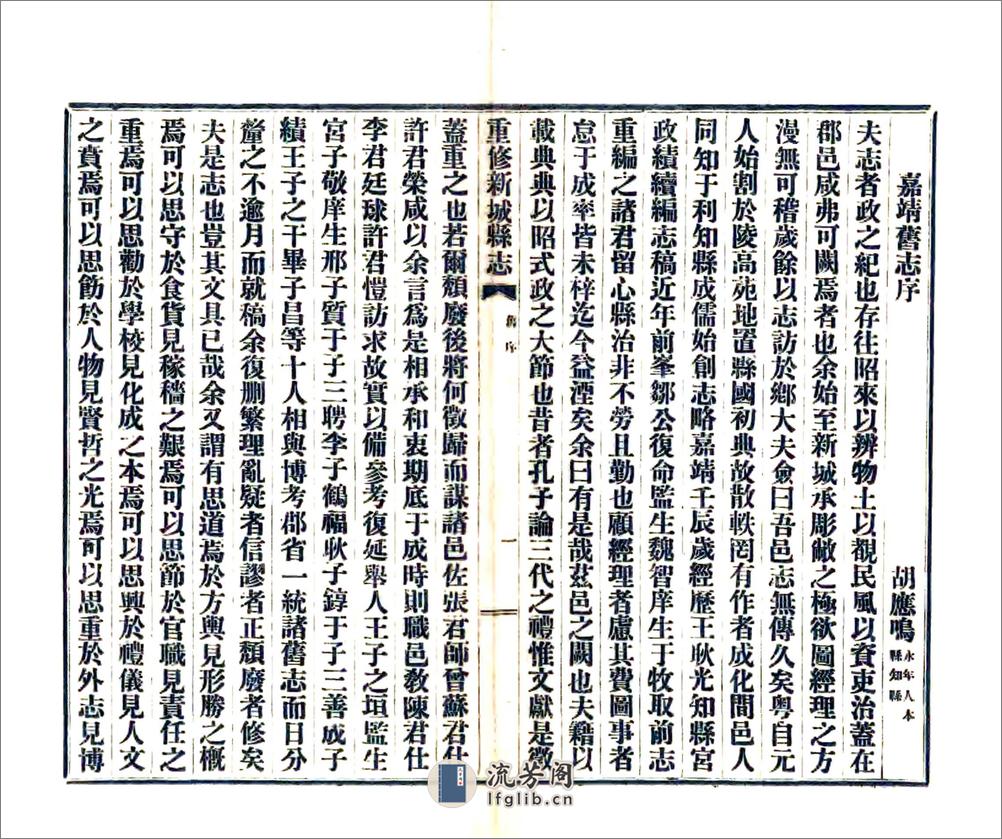 嘉靖舊志序
胡應鳴 永年人本縣知縣
夫志者政之紀也存往昭來以辨物土以覩民風以資吏治蓋在
郡邑咸弗可闕焉者也余始至新城承彫敝之極欲圖經理之方
漫無可稽歲餘以志訪於鄉大夫僉曰吾邑志無傳久矣粤自元
人始割於陵高苑地置縣國初典故散軼罔有作者成化間邑人
同知于利知縣成儒始創志略嘉靖壬辰歲經歷王耿光知縣宮
政績續編志稿近年前峯鄒公復命監生魏智庠生于牧取前志
重編之諸君留心縣治非不勞且勤也顧經理者慮其費圖事者
怠于成率皆未梓迄今益湮矣余曰有是哉茲邑之闕也夫籍以
載典典以昭式政之大節也昔者孔子論三代之禮惟文獻是徵
重修新城縣志 舊序 一
蓋重之也若爾頹廢後將何徵歸而謀諸邑佐張君師曾蘇君仕
許君榮咸以余言爲是相承和衷期底于成時則職邑敎陳君仕
李君廷球許君愷訪求故實以備參考復延舉人王子之垣監生
宮子敬庠生邢子質于子三聘李子鶴福耿子錞于子三善成子
績王子之干畢子昌等十人相與博考郡省一統諸舊志而日分
釐之不逾月而就稿余復刪繁理亂疑者信謬者正頹廢者修矣
夫是志也豈其文具已哉余又謂有思道焉於方輿見形勝之概
焉可以思守於食貨見稼穡之艱焉可以思節於官職見責任之
重焉可以思勸於學校見化成之本焉可以思興於禮儀見人文
之賁焉可以思飭於人物見賢哲之光焉可以思重於外志見博
流芳阁
lfglib.cn